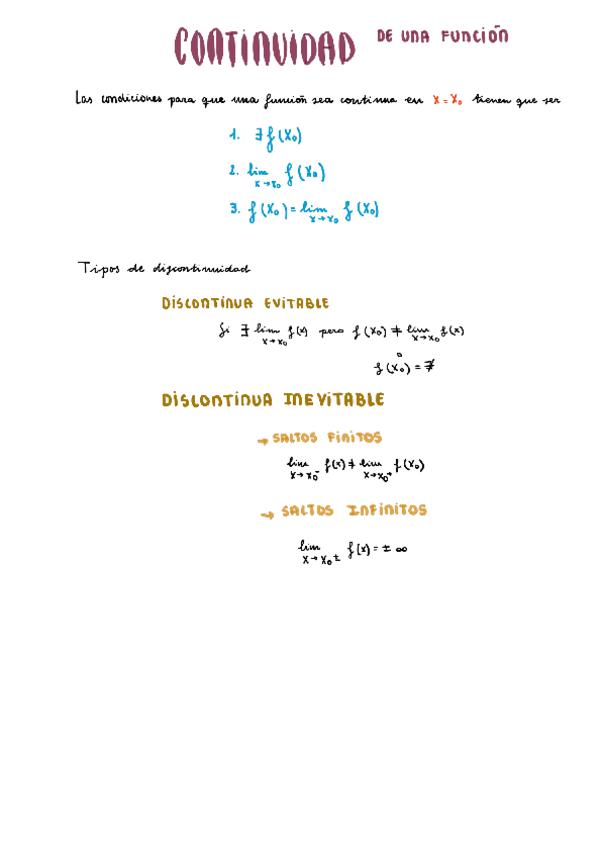 CONTINUIDAD DE UNA FUNCIÓN
Las condiciones para que una función sea continua en x = x₀ tienen que ser
1. ∃ f(x₀)
2. lim x→x₀ f(x₀)
3. f(x₀) = lim x→x₀ f(x₀)
Tipos de discontinuidad
DISCONTINUA EVITABLE
Si ∃ lim x→x₀ f(x) pero f(x₀) ≠ lim x→x₀ f(x)
o
f(x₀) = ∄
DISCONTINUA INEVITABLE
→ SALTOS FINITOS
lim x→x₀⁻ f(x) ≠ lim x→x₀⁺ f(x₀)
→ SALTOS INFINITOS
lim x→x₀± f(x) = ± ∞